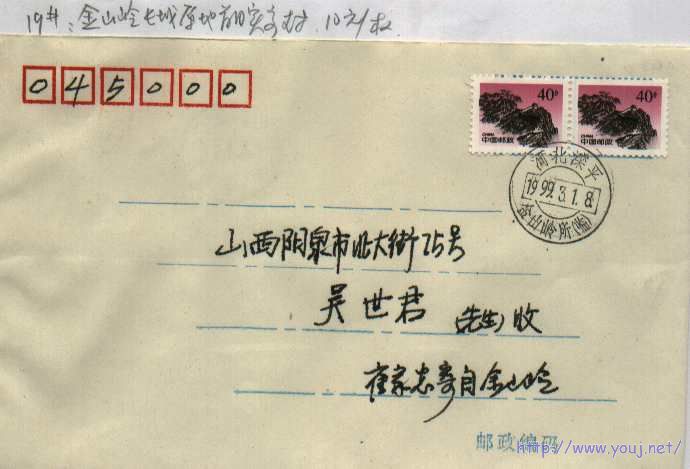 19#:金山岭长城原地首日实寄封.10元/枚
045000
40分 40分
CHINA 中国邮政 CHINA 中国邮政
河北滦平
1999.3.1.8
金山岭所
山西阳泉市北大街75号
吴世君 (先生)收
崔家忠寄自金山岭
邮政编码
http://www.youj.net/